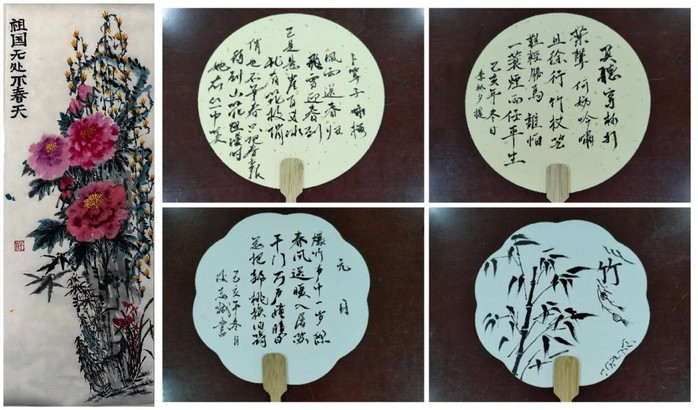 祖国无处不春天
卜算子 咏梅
风雨送春归
飞雪迎春到
已是悬崖百丈冰
犹有花枝俏
俏也不争春只把春来报
待到山花烂漫时
她在丛中笑
莫听穿林打
叶声何妨吟啸
且徐行竹杖芒
鞋轻胜马谁怕
一蓑烟雨任平生
己亥年冬日
元月
爆竹声中一岁除
春风送暖入屠苏
千门万户曈曈日
总把新桃换旧符
己亥年冬月
竹